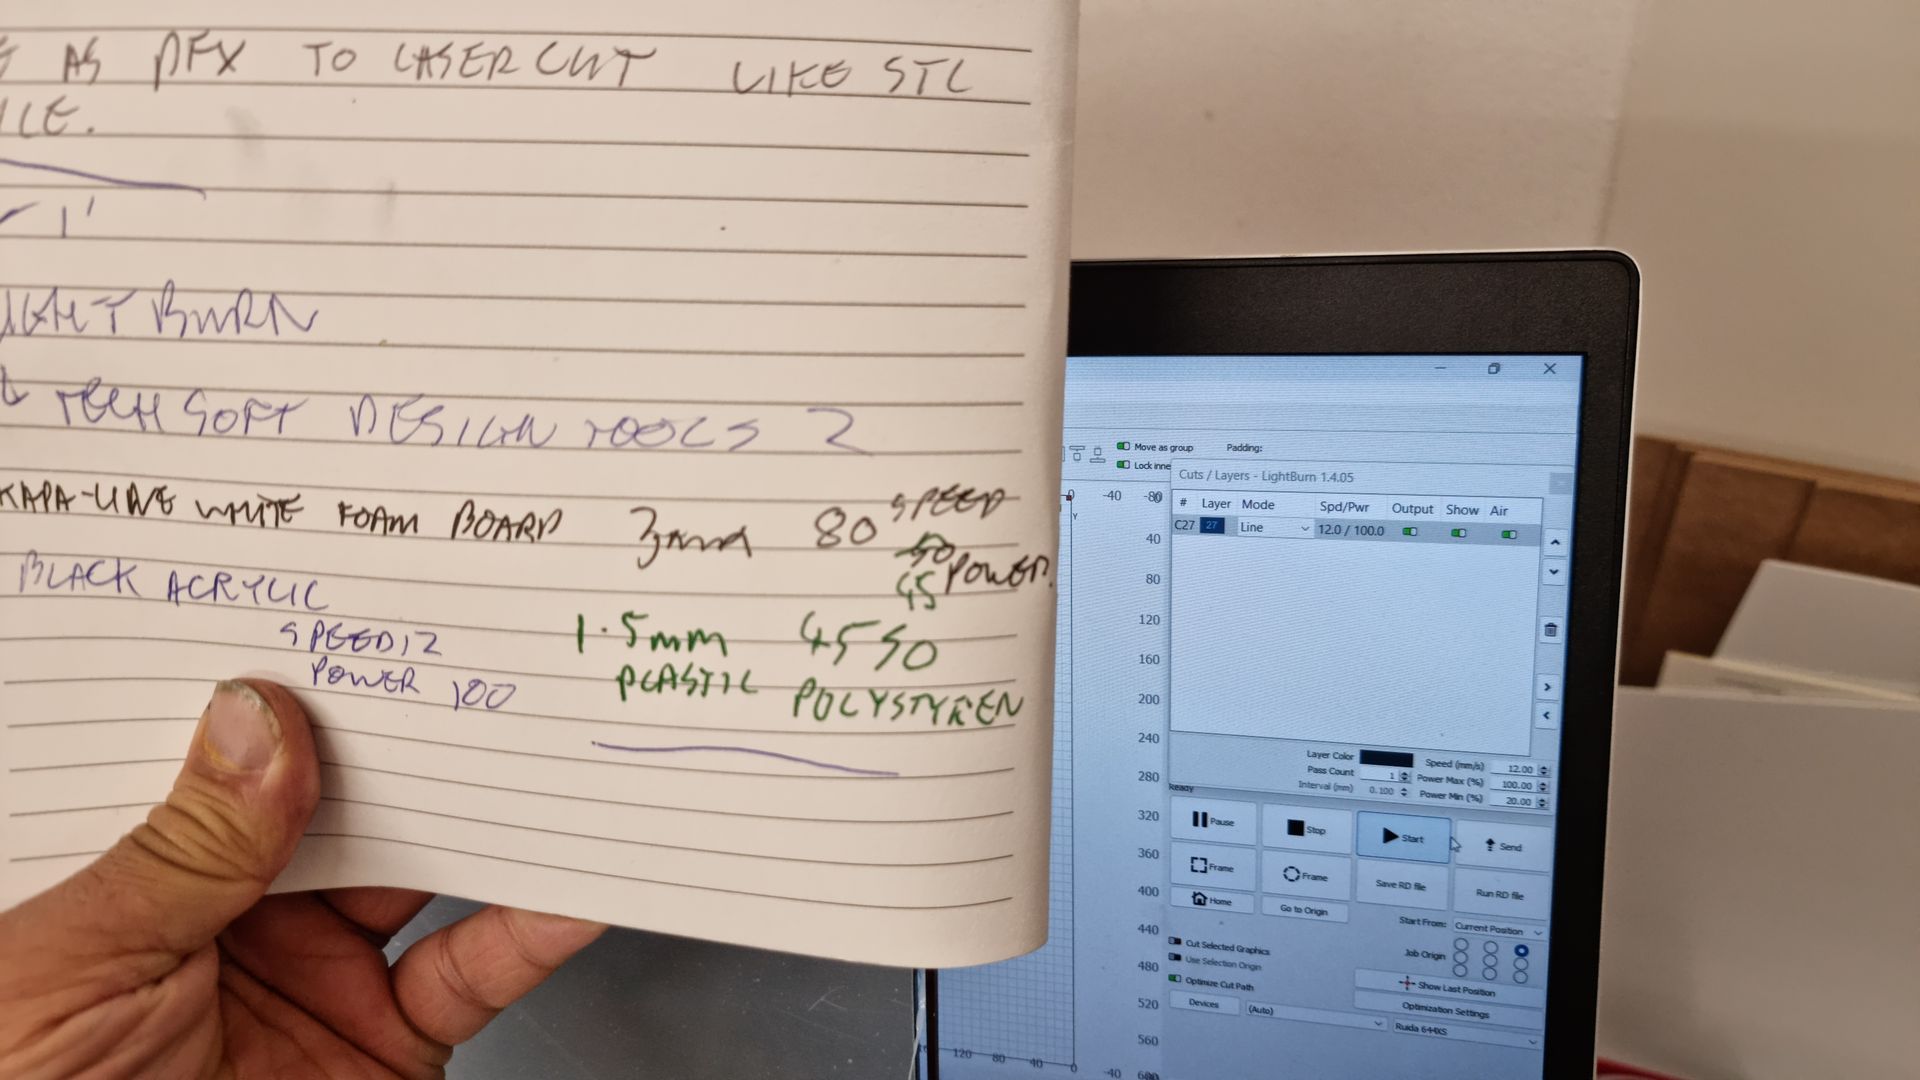 AS DFX TO LASER CUT LIKE STL
ILE.
1'
IGHT BURN
TECH SOFT DESIGN TOOLS 2
KAPA-LINE WHITE FOAM BOARD 3mm 80 SPEED
50 POWER.
45
BLACK ACRYLIC
SPEED 12
POWER 100
1.5mm 45 50
PLASTIC POLYSTYREN
Move as group Padding:
Lock inne
Cuts / Layers - LightBurn 1.4.05
# Layer Mode Spd/Pwr Output Show Air
C27 27 Line 12.0 / 100.0
Layer Color Speed (mm/s) 12.00
Pass Count 1 Power Max (%) 100.00
Interval (mm) 0.100 Power Min (%) 20.00
Ready
Pause Stop Start Send
Frame Frame Save RD file Run RD file
Home Go to Origin
Start From: Current Position
Cut Selected Graphics Job Origin
Use Selection Origin
Optimize Cut Path Show Last Position
Optimization Settings
Devices (Auto) Ruida 644XS
0 -40 -80
Y
40
80
120
160
200
240
280
320
360
400
440
480
520
560
120 80 40 0 -40